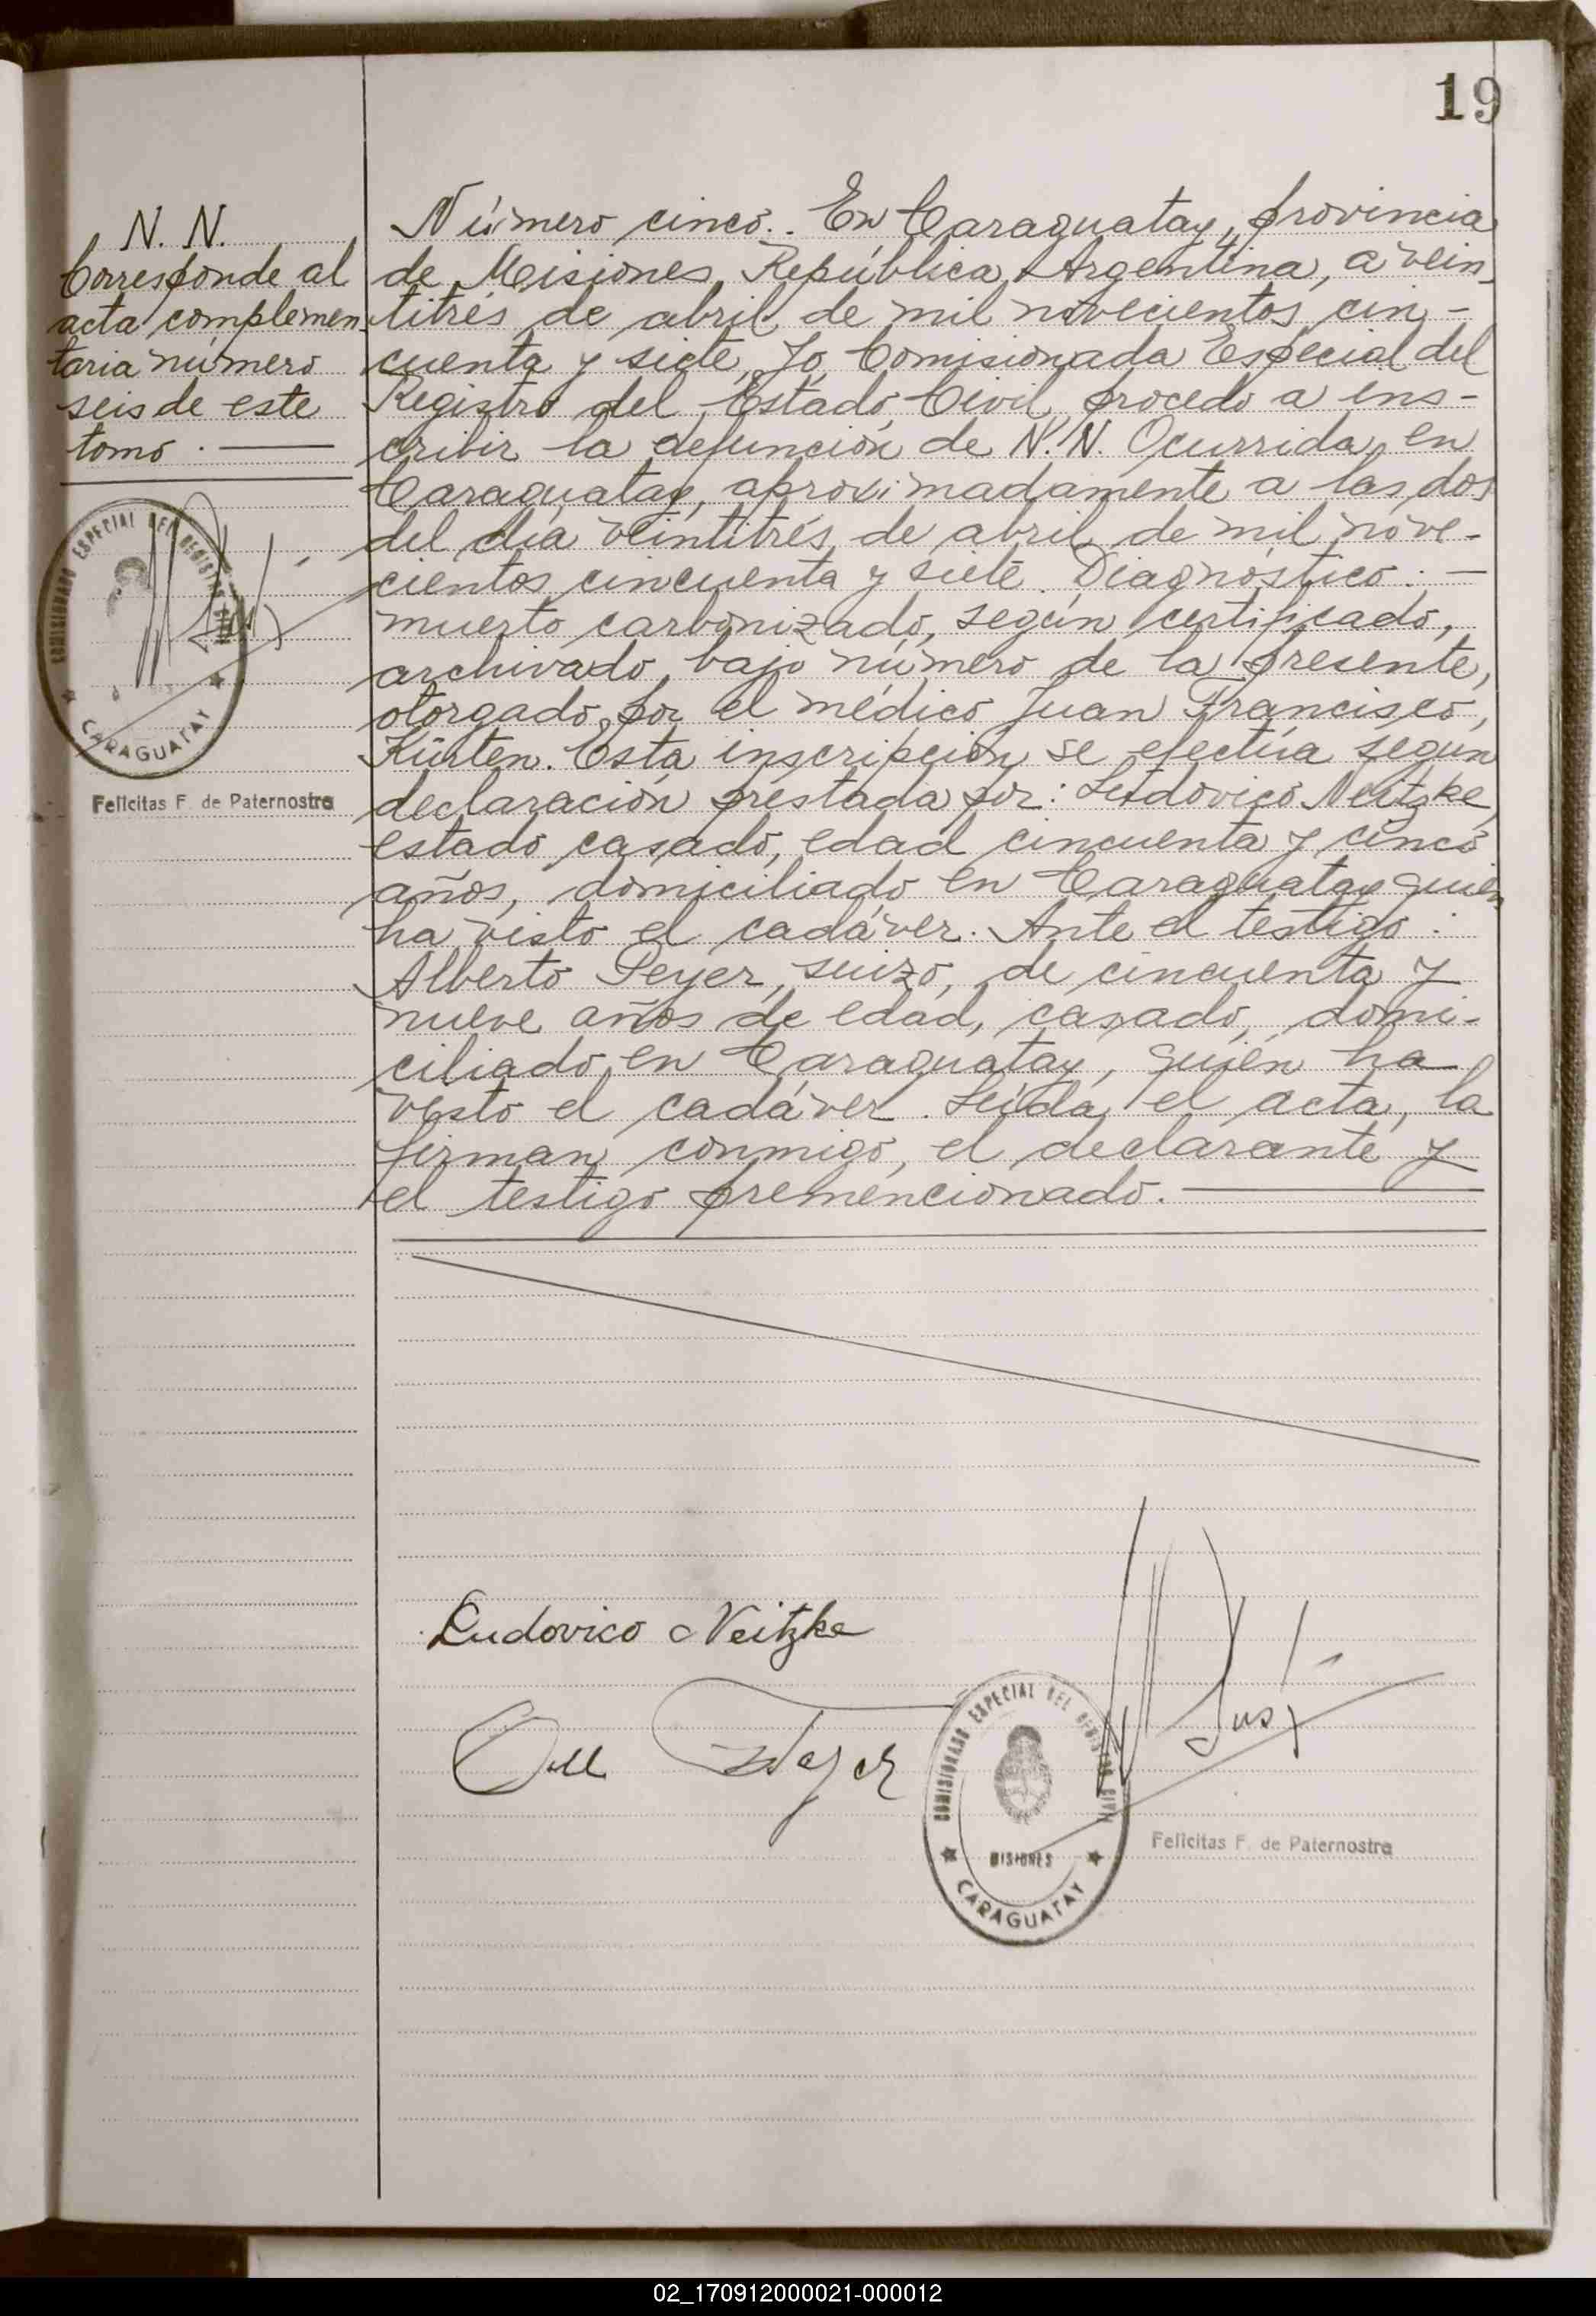 19
N. N.
Corresponde al
acta complemen-
taria número
seis de este
tomo. —
COMISIONADO ESPECIAL DEL REGISTRO CIVIL
CARAGUATAY
Felicitas F. de Paternostro
Número cinco.. En Caraguatay, provincia
de Misiones, República Argentina, a vein-
titrés de abril de mil novecientos cin-
cuenta y siete, Yo, Comisionada Especial del
Registro del Estado Civil, procedo a ins-
cribir la defunción de N. N. Ocurrida en
Caraguatay, aproximadamente a las dos
del día veintitrés de abril de mil nove-
cientos cincuenta y siete. Diagnóstico: —
muerto carbonizado, según certificado,
archivado bajo número de la presente,
otorgado por el médico Juan Francisco,
Kürten. Esta inscripción se efectúa según
declaración prestada por: Ludovico Neitzke,
estado casado, edad cincuenta y cinco
años, domiciliado en Caraguatay quien
ha visto el cadáver. Ante el testigo:
Alberto Peyer, suizo, de cincuenta y
nueve años de edad, casado, domi-
ciliado en Caraguatay, quién ha
visto el cadáver. Leída el acta, la
firman conmigo, el declarante y
el testigo premencionado. —
Ludovico Neitzke
COMISIONADO ESPECIAL DEL REGISTRO CIVIL
MISIONES
CARAGUATAY
Felicitas F. de Paternostro
02_170912000021-000012